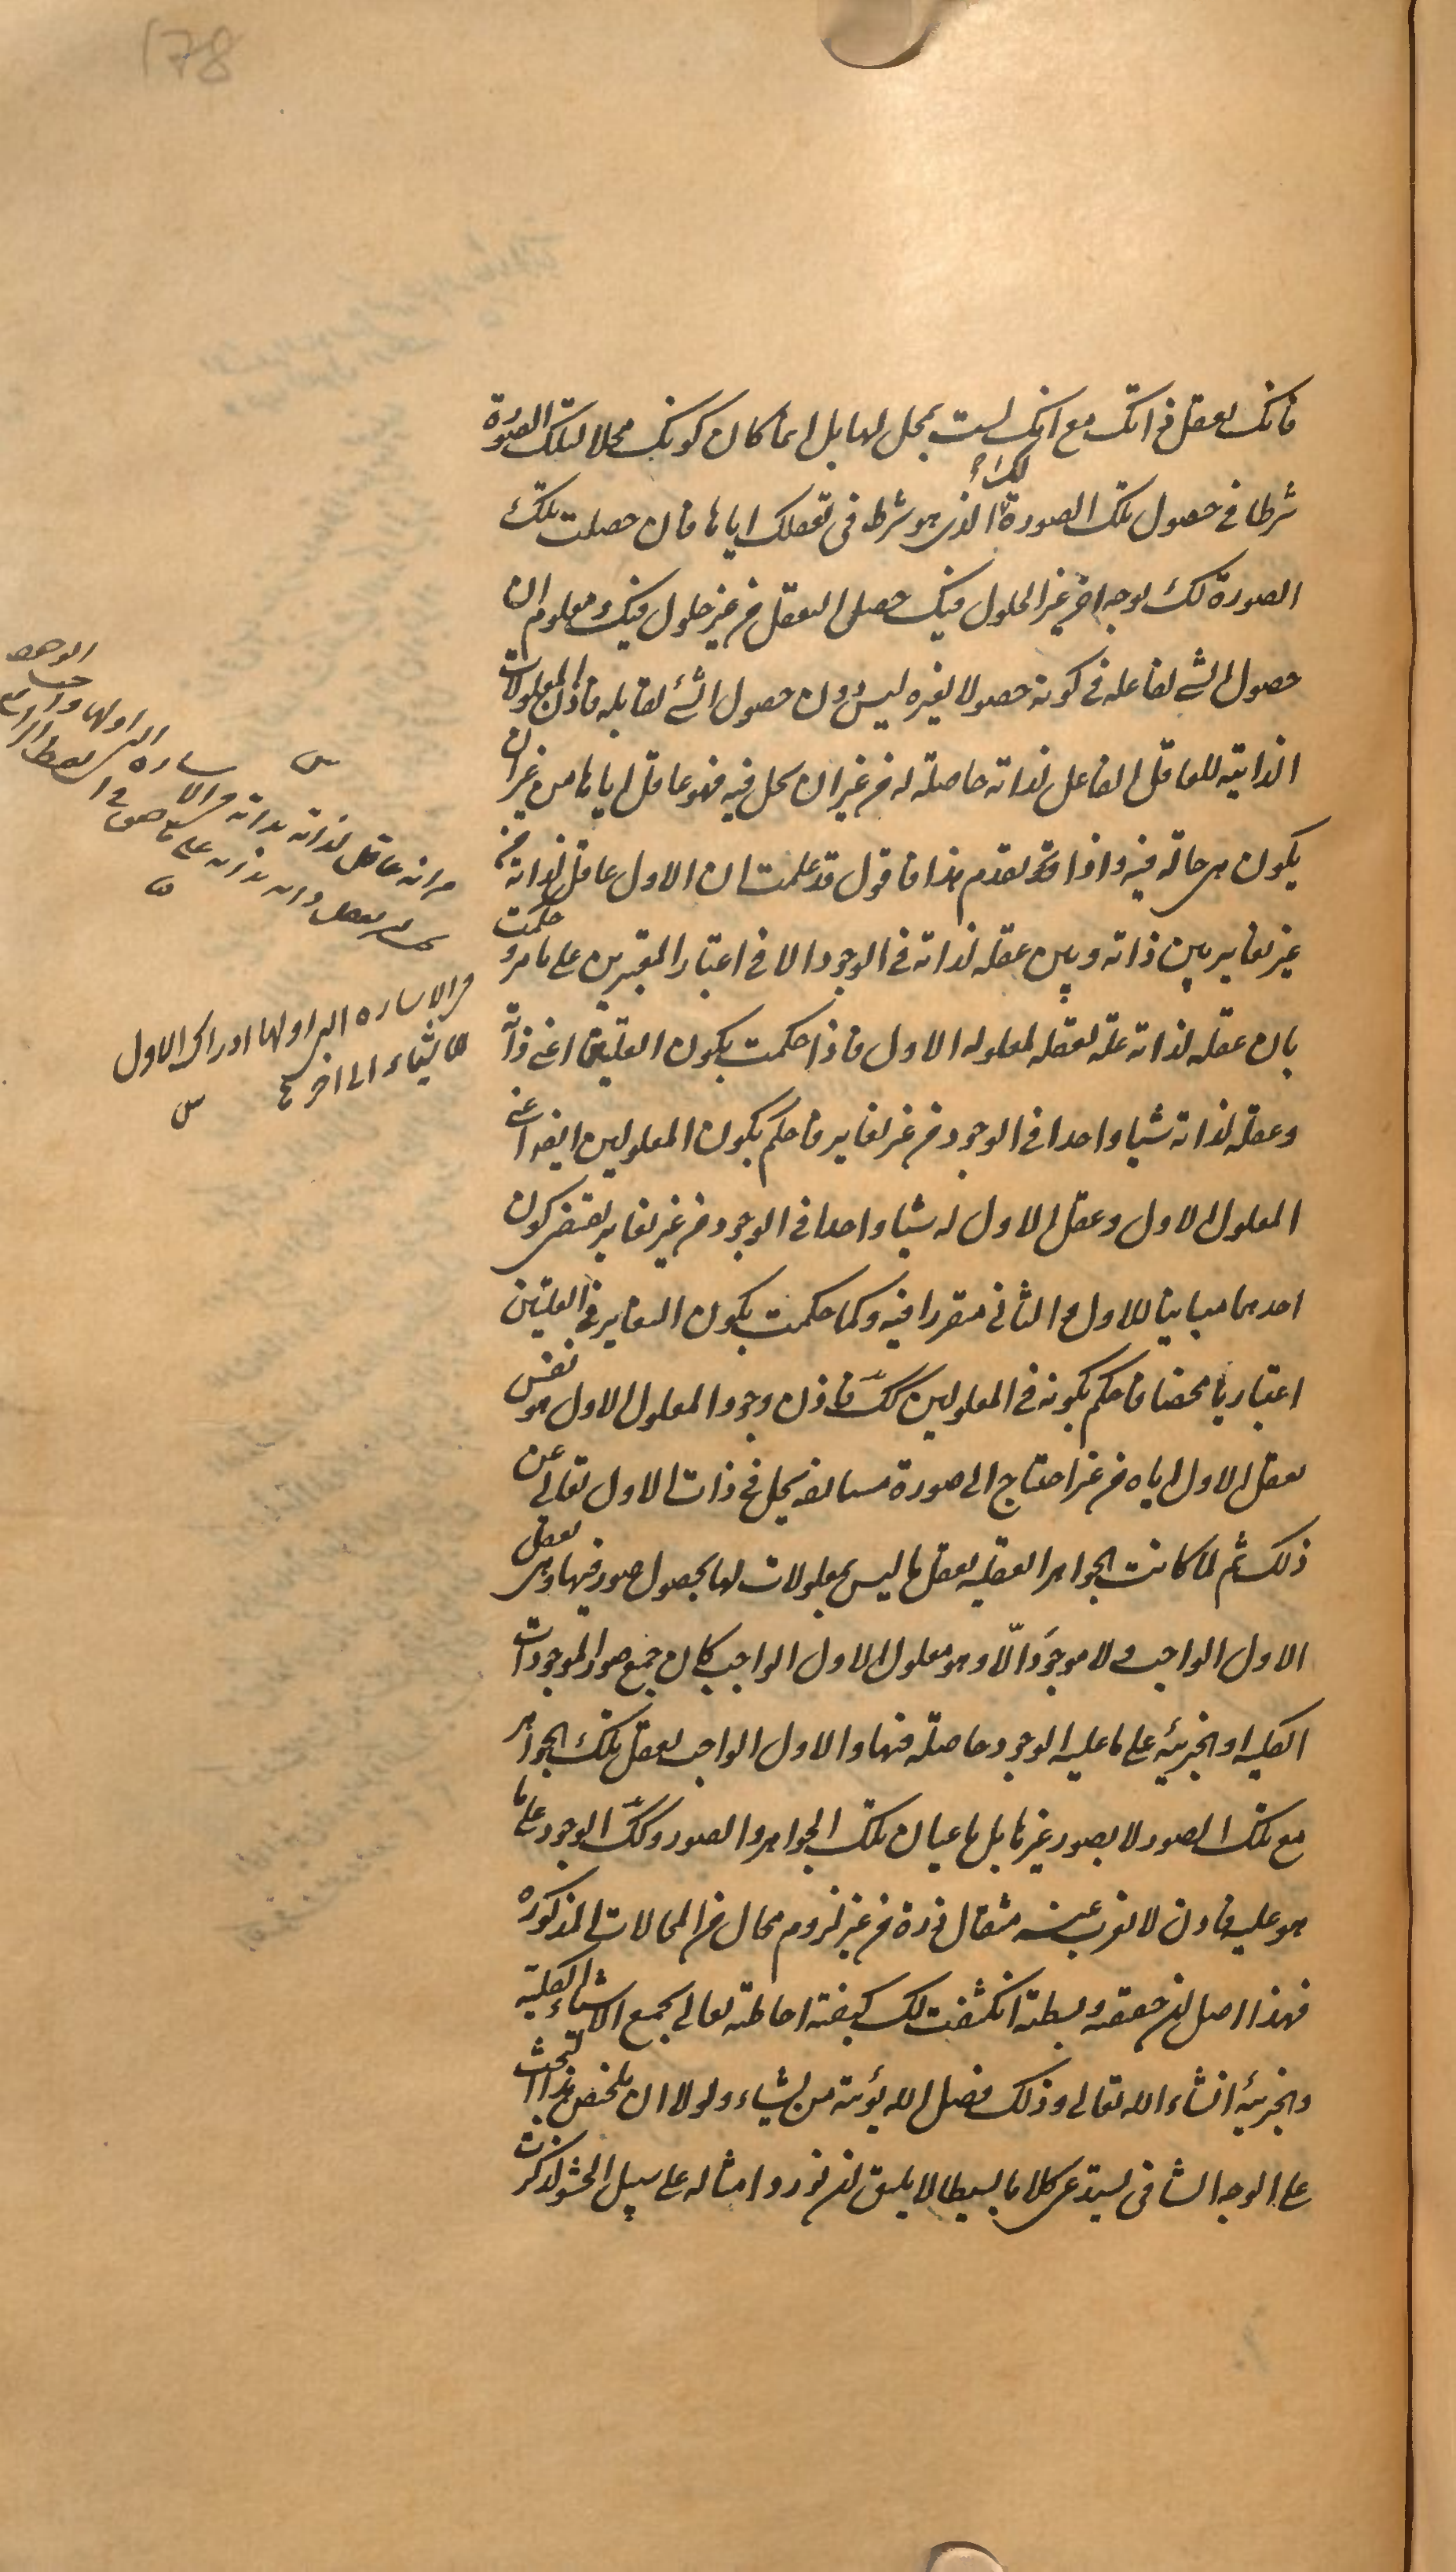 178
فانك تعقل ذاتك مع انك لست بمحل لها بل انما كان كونك محلا لتلك الصورة
شرطا فى حصول تلك الصورة لك الذى هو شرط فى تعقلك اياها فان حصلت تلك
الصورة لك بوجه اخر غير الحلول فيك حصل التعقل من غير حلول فيك ومعلوم ان
حصول الشئ لفاعله فى كونه حصولا لغيره ليس دون حصول الشئ لقابله فاذن المعلولات
الذاتية للعاقل الفاعل لذاته حاصلة له من غير ان تحل فيه فهو عاقل اياها من غير ان
يكون هى حالة فيه واذا قد تقدم هذا فاقول قد علمت ان الاول عاقل لذاته من
غير تغاير بين ذاته وبين عقله لذاته فى الوجود الا فى اعتبار المعتبرين على ما مر وحكمت
بان عقله لذاته علة لعقله لمعلوله الاول فاذا حكمت بكون العلتين اعنى ذاته
وعقله لذاته شيا واحدا فى الوجود من غير تغاير فاحكم بكون المعلولين ايضا اعنى
المعلول الاول وعقل الاول له شيا واحدا فى الوجود من غير تغاير يقتضى كون
احدهما مباينا للاول والثانى متقررا فيه وكما حكمت بكون التغاير فى العلتين
اعتباريا محضا فاحكم بكونه فى المعلولين كك فاذن وجود المعلول الاول هو نفس
تعقل الاول اياه من غير احتياج الى صورة مستانفة تحل فى ذات الاول تعالى عن
ذلك ثم لما كانت الجواهر العقليه تعقل ما ليس بمعلولات لها بحصول صور فيها وهى تعقل
الاول الواجب و لا موجود الا وهو معلول الاول الواجب كان جميع صور الموجودات
الكليه والجزئيه على ما عليه الوجود حاصلة فيها والاول الواجب يعقل تلك الجواهر
مع تلك الصور لا بصور غيرها بل باعيان تلك الجواهر والصور وكك الوجود على ما
هو عليه فاذن لا يعزب عنه مثقال ذرة من غير لزوم محال من المحالات المذكورة
فهذا اصل ان حققته وبسطته انكشفت لك كيفية احاطته تعالى بجميع الاشياء الكلية
والجزئيه انشاء الله تعالى وذلك فضل الله يؤتيه من يشاء ولولا ان تلخيص هذا البحث
على الوجه الشافى يستدعى كلاما بسيطا لا يليق ان نورد امثاله على سبيل الحشو لذكرت
من انه عاقل لذاته بذاته
فى الاشاره التى اولها ادراك الاول
للاشياء الى اخره